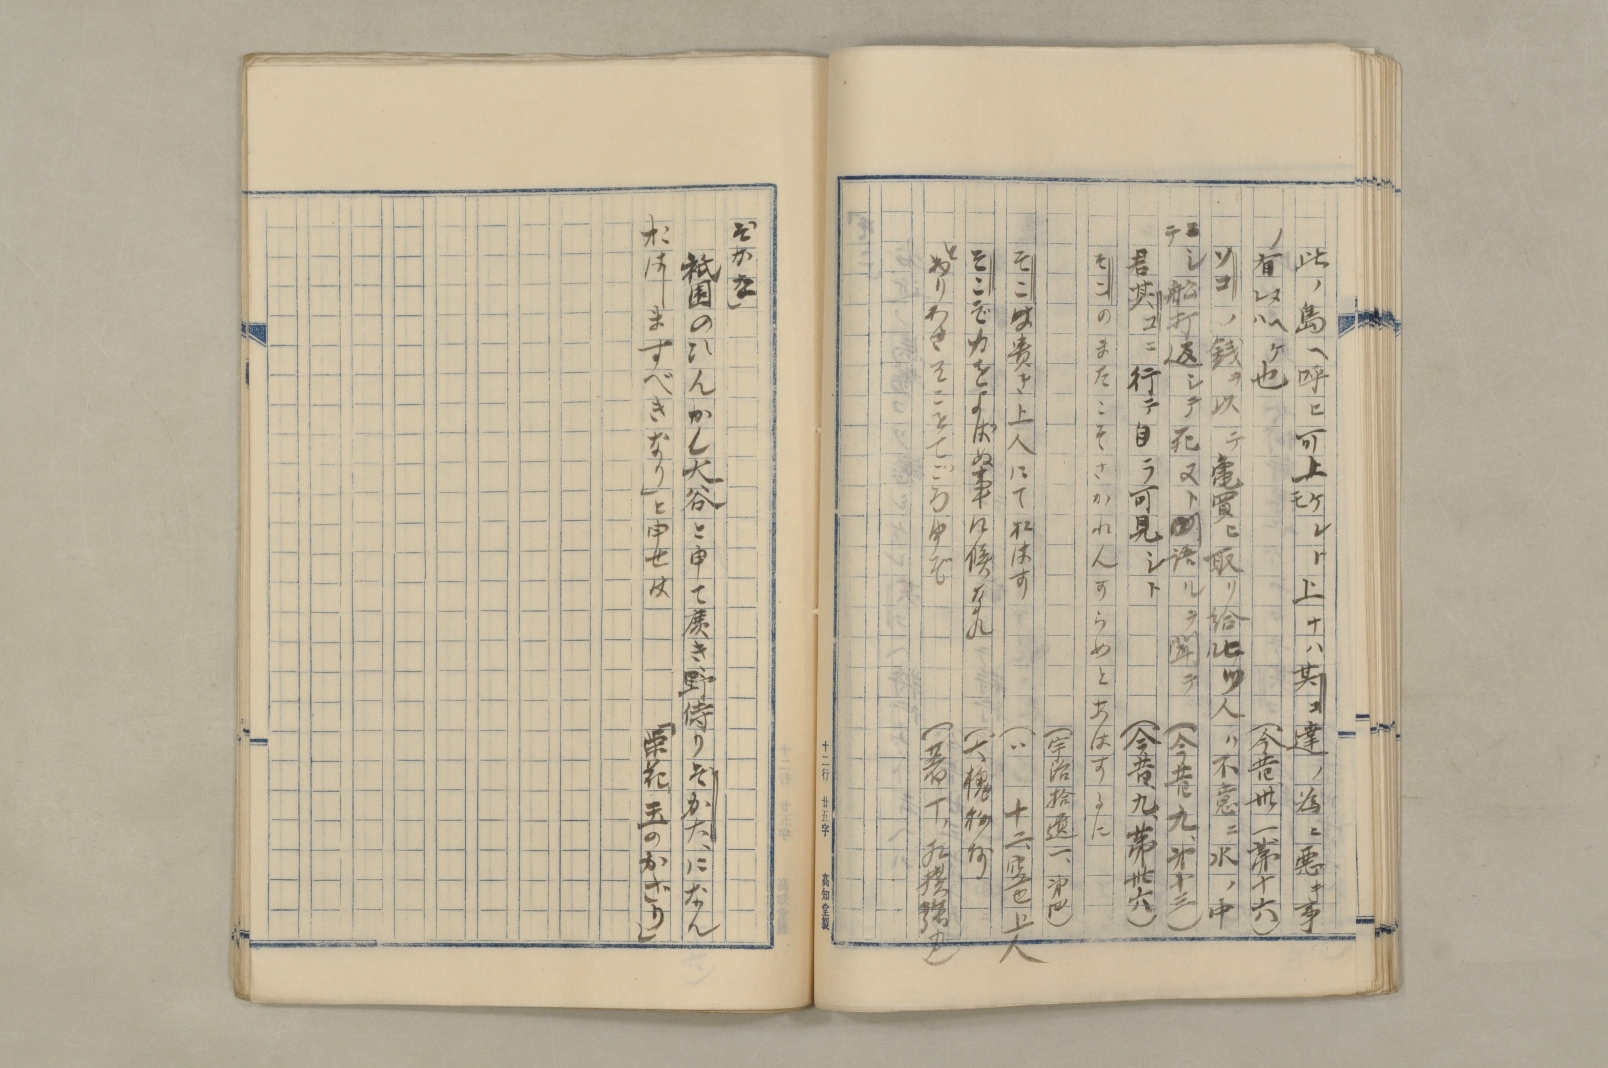 此ノ島ヘ呼ヒ可上ケレトモ上ナハ其コ達ノ為ニ惡キ事
ノ有ヌヘケレハ也
(今昔卅一第十六)
ソコノ銭ヲ以テ亀買ヒ取リ給ヒツル人ハ不意ニ水ノ中
ニシテ船打返シテ死ヌト語ルヲ聞テ
(今昔九、第十三)
君其コニ行テ自ラ可見シト
(今昔、九、第卅六)
そこのまたこそさかれんすらめとあはする
(宇治拾遺一、第四)
そこは貴き上人にておはす
(〃 十二、空也上人
そこで力をよばぬ事に候
(大槐秘抄
ねりわきそことてごろ
(著
十二行 廿五字 高知堂製
そかた」
祇園のひんかし大谷と申て廣き野侍りそかた、になん
おはしますべきなり」と申せは
「栄花 玉のかざり」